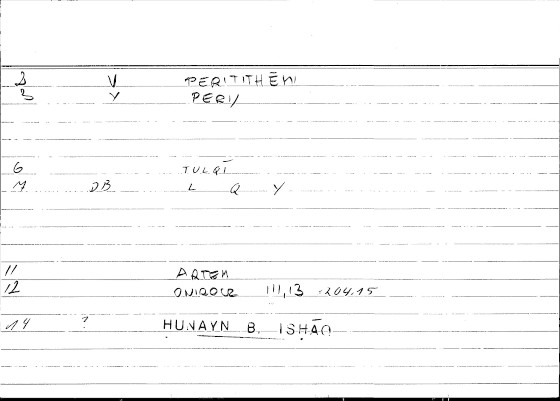 2 V PERITITHĒMI
3 Y PERI/
6 TULQĪ
M DB L Q Y
11 ARTEM
12 ONIROCR III,13 204.15
14 ? ḤUNAYN B. ISḤĀQ